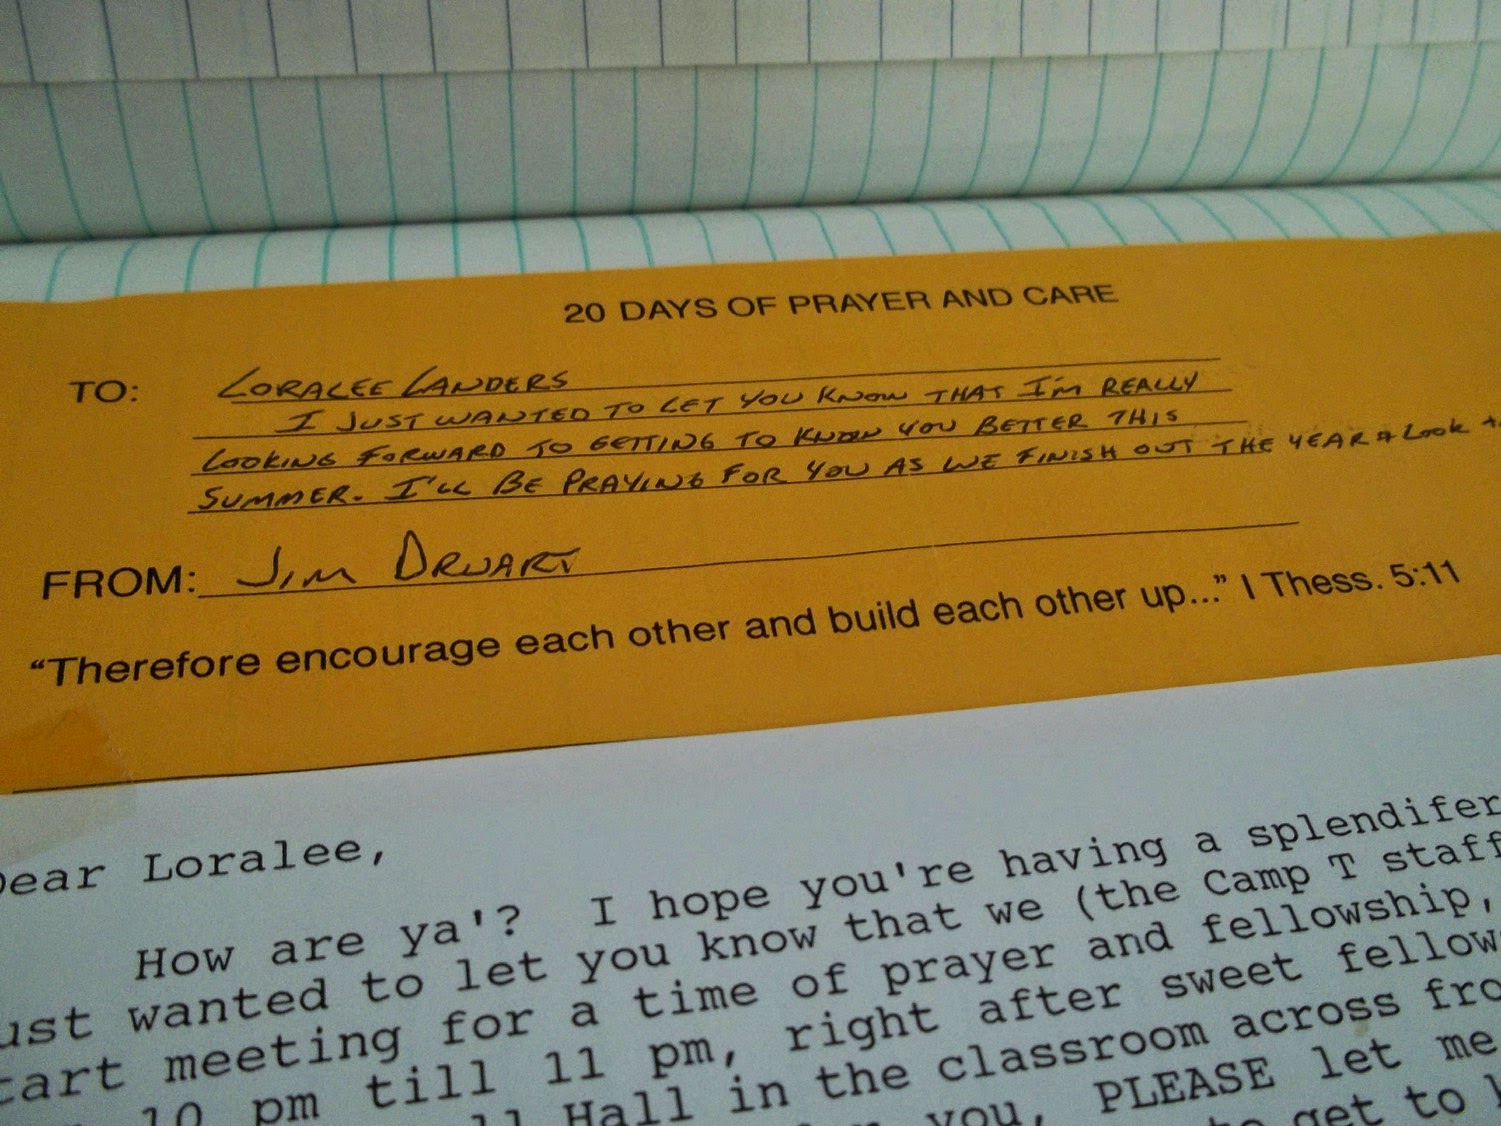 20 DAYS OF PRAYER AND CARE
TO: LORALEE LANDERS
I JUST WANTED TO LET YOU KNOW THAT I'M REALLY
LOOKING FORWARD TO GETTING TO KNOW YOU BETTER THIS
SUMMER. I'LL BE PRAYING FOR YOU AS WE FINISH OUT THE YEAR & LOOK
FROM: JIM DRUART
“Therefore encourage each other and build each other up...” I Thess. 5:11
Dear Loralee,
How are ya'? I hope you're having a splendifer
ust wanted to let you know that we (the Camp T staff
tart meeting for a time of prayer and fellowship,
10 pm till 11 pm, right after sweet fellow
Hall in the classroom across fro
you, PLEASE let me
get to